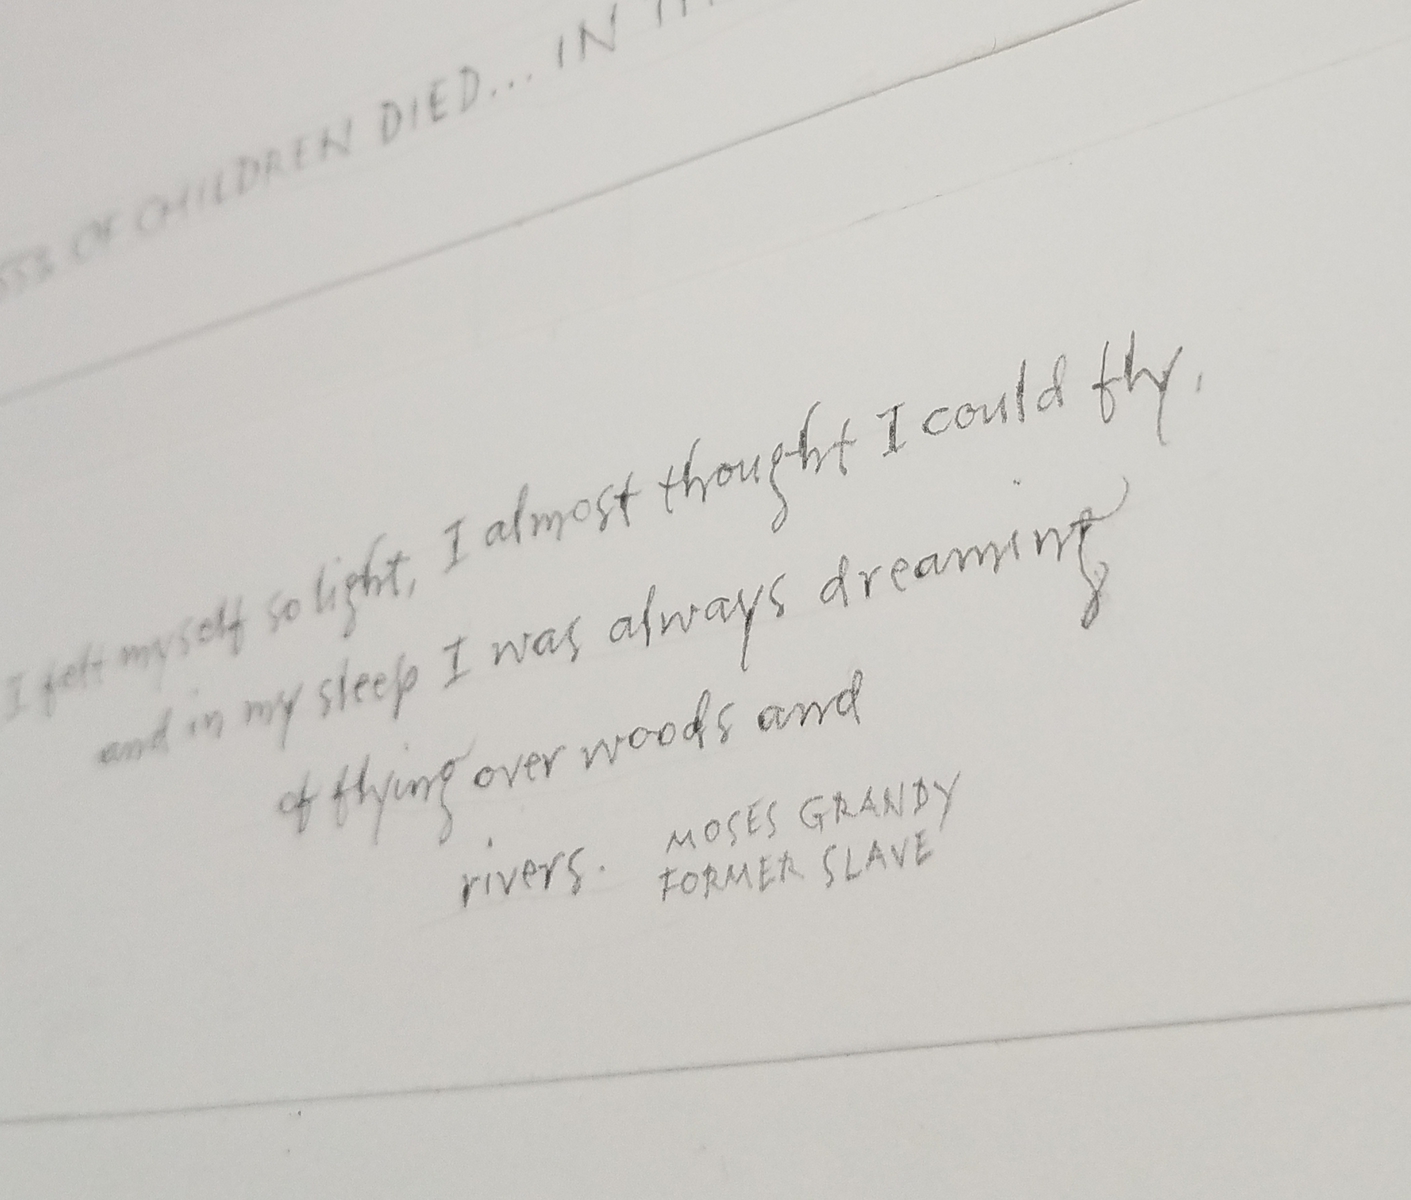 OF CHILDREN DIED... IN
I felt myself so light, I almost thought I could fly,
and in my sleep I was always dreaming
of flying over woods and
rivers. MOSES GRANDY
FORMER SLAVE